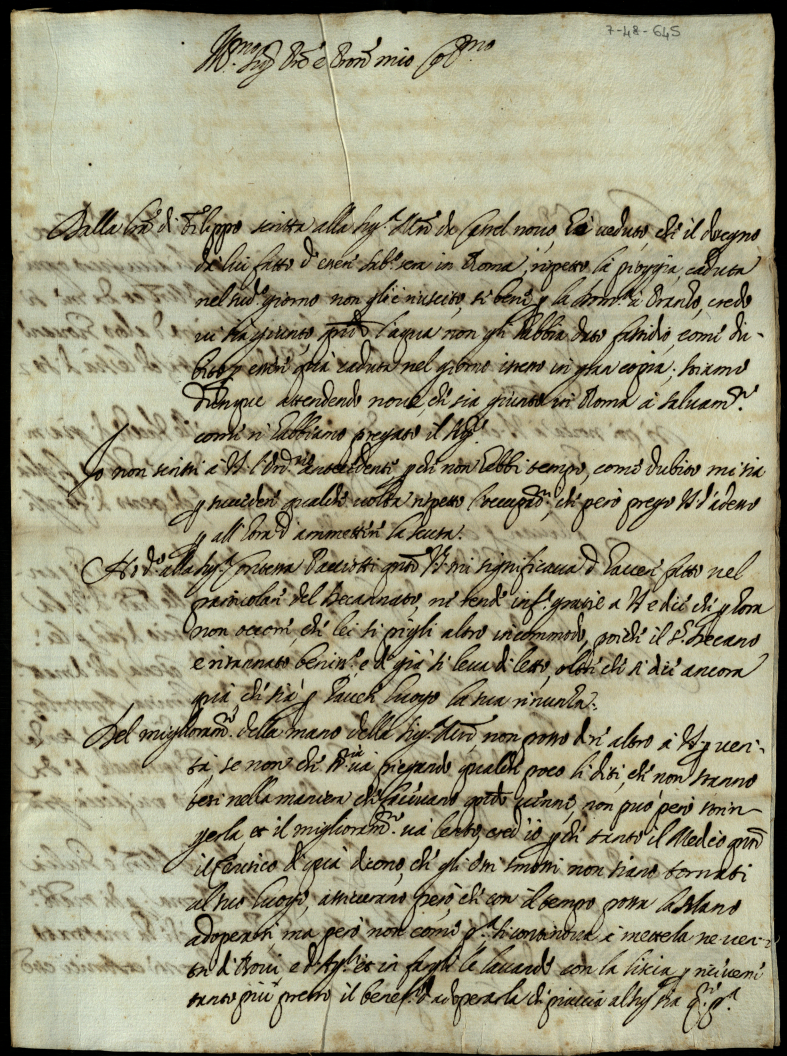 7-48-645
Ill.mo Sig.r e Pron mio Col.mo
Dalla lra di Filippo scritta alla Sig.ra Mre da Castel novo, ho veduto, che il disegno
da lui fatto d'esser sab.o sera in Roma, rispetto la pioggia caduta
nel sud.o giorno non gli è riuscito, si bene p la Dom.ca à Pranso, credo
vi sia giunto, l'aqua non gli habbia dato fastidio, come du-
bito p esser quà caduta nel giorno istesso in gran copia; stiamo
dunque attendendo nova, che sia giunto in Roma à salvam.to
come n'habbiamo pregato il Sig.re
Io non scrissi à VS l'ord.rio antecedente, p che non hebbi tempo, come dubito mi sia
p succedere qualche volta rispetto l'occupaon, che però prego VS d'adesso
p all'hora d'ammetterne la scusa.
Hò d.o alla Sig.ra Pacciotti VS mi significava d'haver fatto nel
particolare del Decannato, ne rende inf.e grazie a VS e dice che p hora
non occorre che lei si pigli altro incommodo, poiche il S.r Decano
è risannato beniss.o e di già si leva di letto, oltre che si dice ancora
quà, che sia p haver luogo la sua rinuntia.
Del miglioram.to della mano della Sig.ra Mre non posso dir altro à VS p veri-
tà se non che và piegando qualche poco li diti, che non stanno
tesi nella maniera che facevano venne, non può però strin-
gerla, et il miglioram.to và lento, cred'io p che tanto il Medico
il Cerusico di quà dicono, che gli ossi smossi non siano tornati
al suo luogo, assicurano però che con il tempo possa la Mano
adoperarsi ma però non come p.a si continova à metterla ne ven-
tri di Bovi e d'Agli et in fargli le lavande con la liscia p ricevere
tanto più presto il benef.o d'adoperarla che piaccia al Sig.re sia